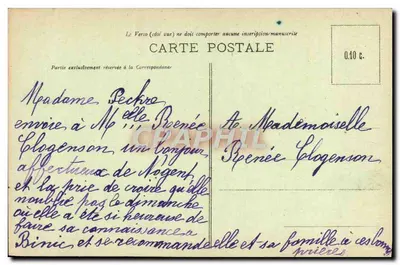 Le Verso (côté vue) ne doit comporter aucune inscription manuscrite
CARTE POSTALE
Partie exclusivement réservée à la Correspondance
0.10 c.
Madame Peckre
envoie à Melle Renée
Clogenson un bonjour
affectueux de Nogent
et la prie de croire qu'elle
n'oublie pas le dimanche
où elle a été si heureuse de
faire sa connaissance à
Binic, et se recommande elle et sa famille à ces bonnes
prières
A Mademoiselle
Renée Clogenson
CPRHTML